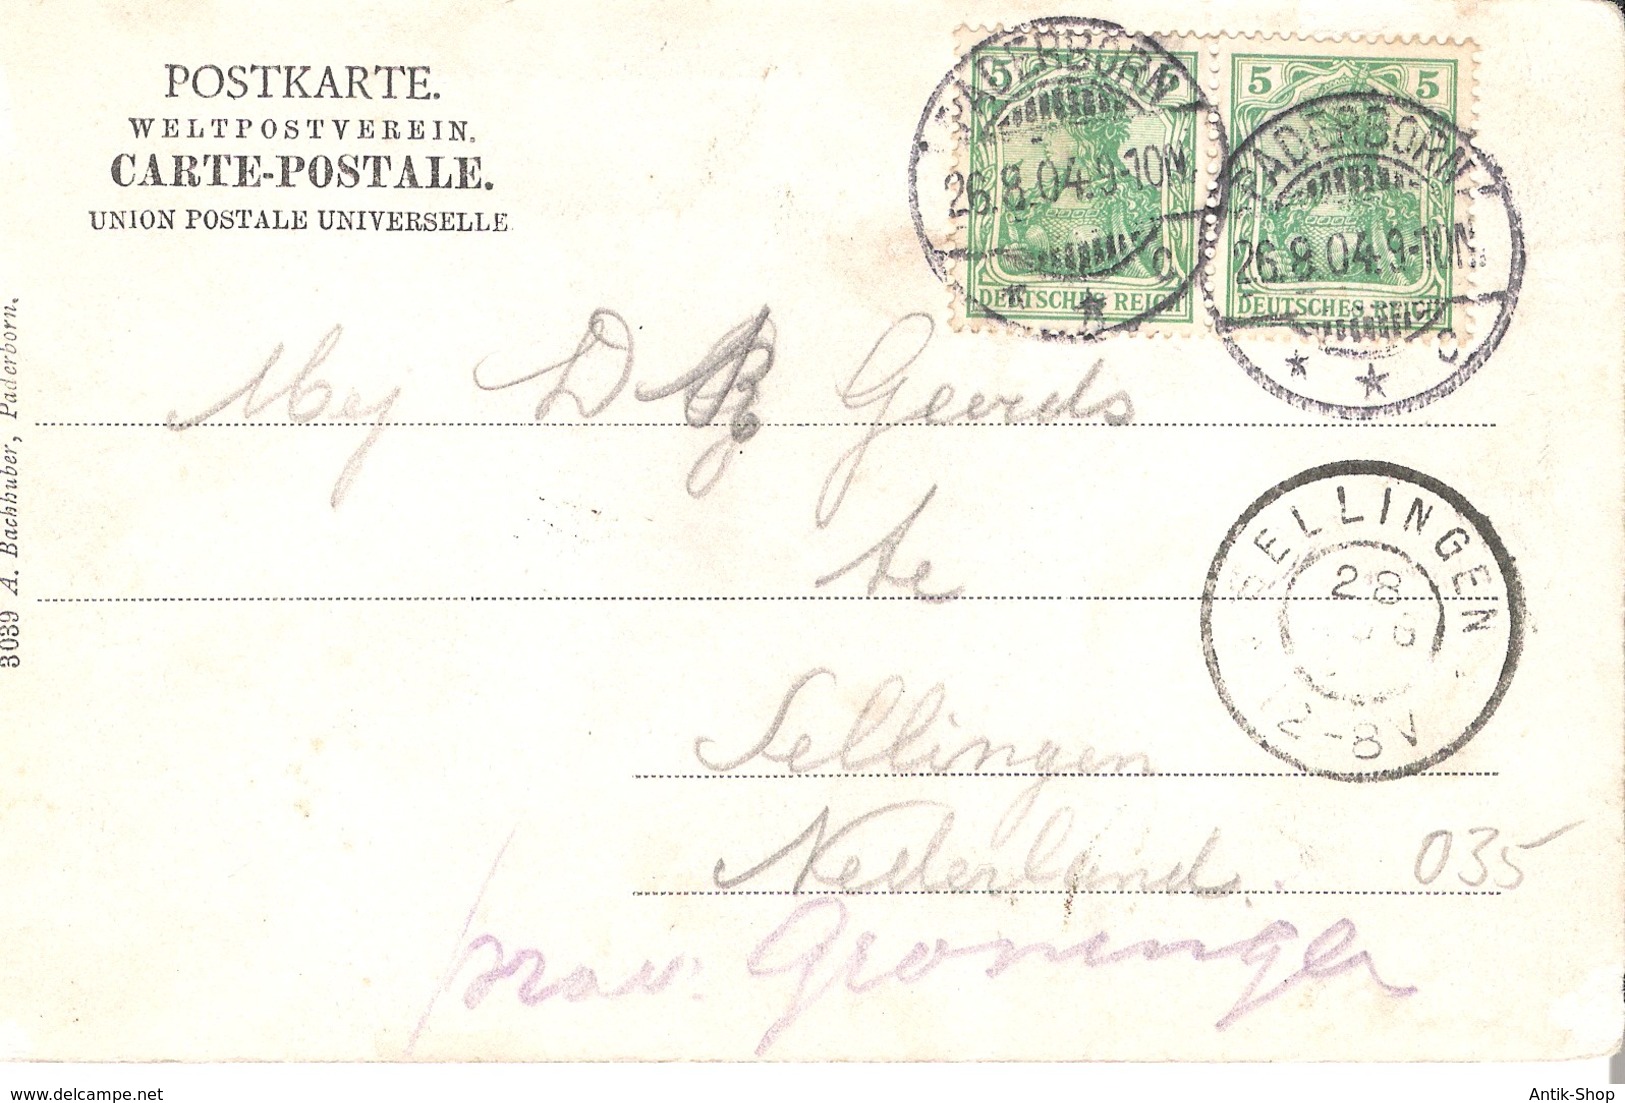 POSTKARTE.
WELTPOSTVEREIN.
CARTE-POSTALE.
UNION POSTALE UNIVERSELLE
5 5 5
DEUTSCHES REICH DEUTSCHES REICH
PADERBORN
26.8.04.9-10N.
c
PADERBORN
26.8.04.9-10N.
c
Mej D Geerds
te
SELLINGEN
28
12-8V
Sellingen
Nederland.
035
prov. Groningen
3039 A. Bachhuber, Paderborn.
www.delcampe.net
Antik-Shop